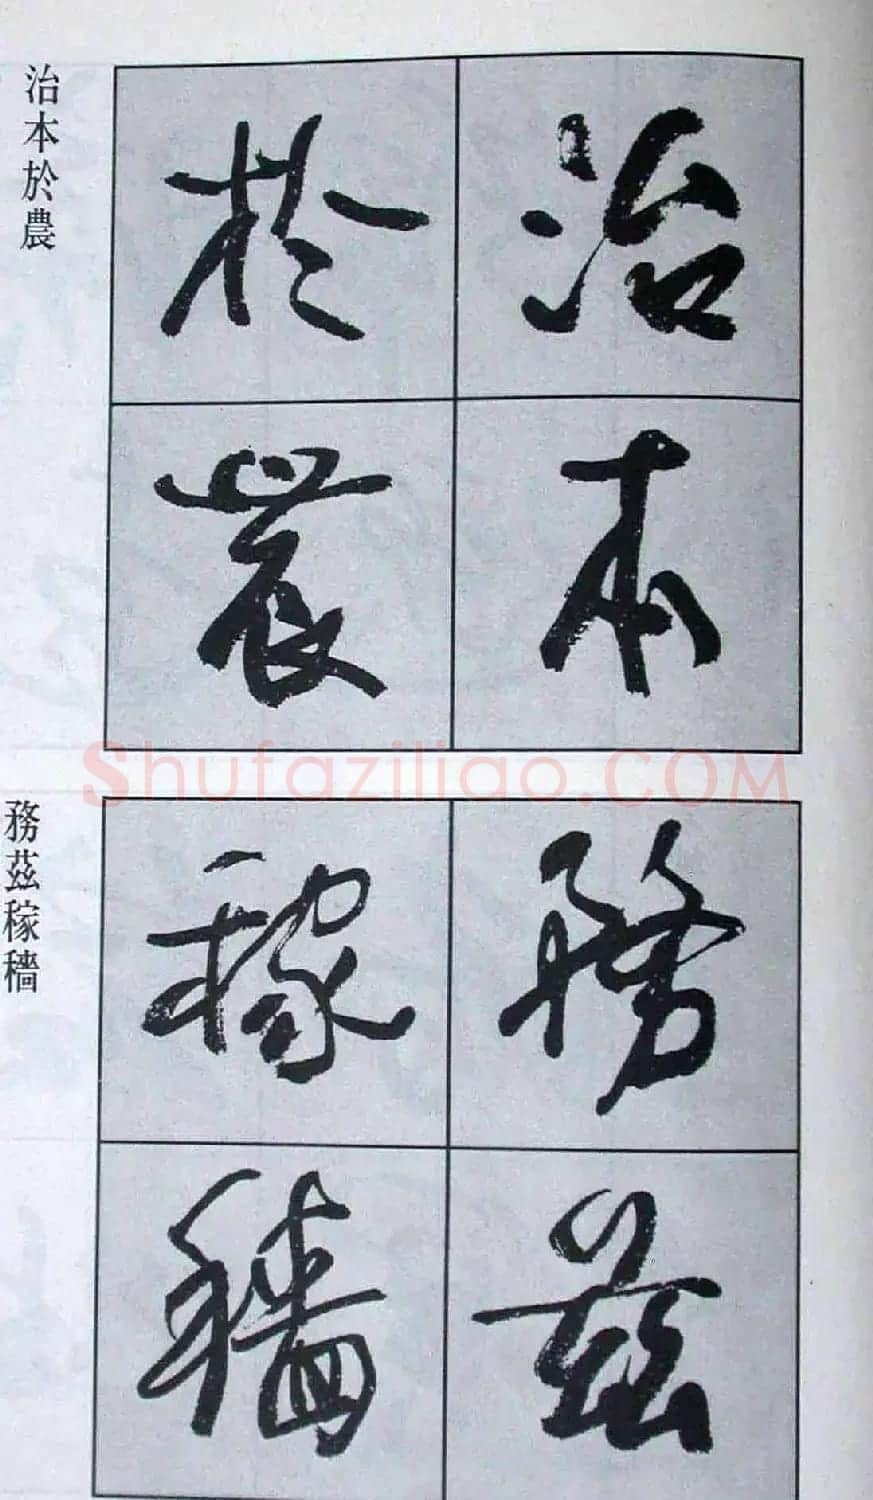 治本
於農
治本於農
Shufaziliao.COM
務茲
稼穡
務茲稼穡